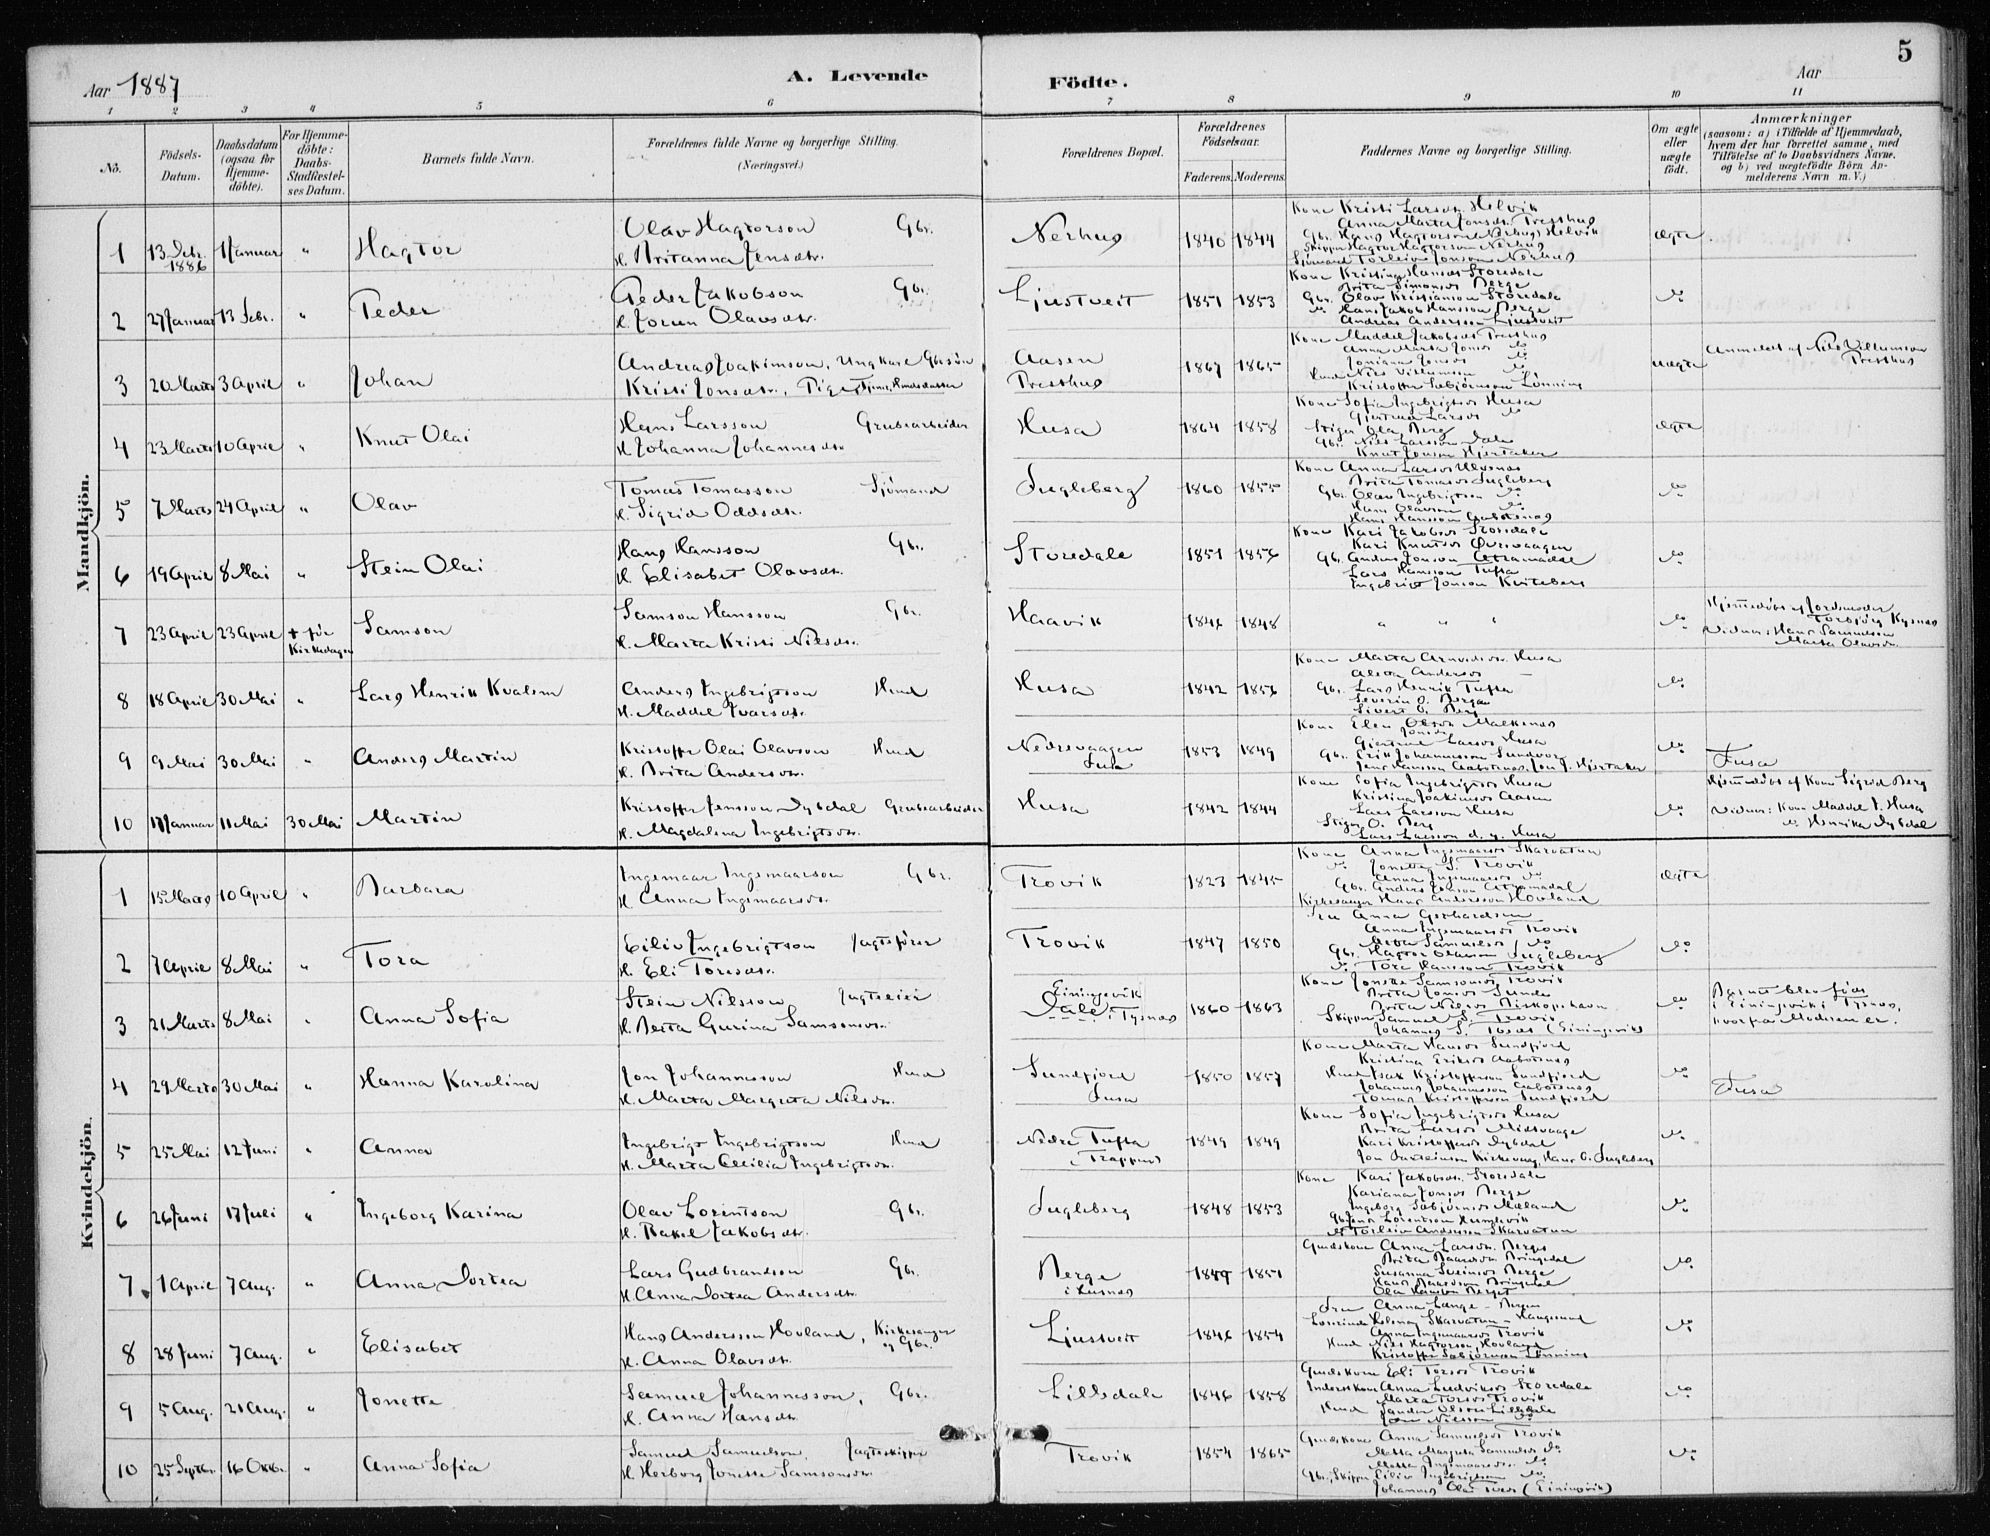 5
Aar 1887
A. Levende Födte.
Aar
1 2 3 4 5 6 7 8 9 10 11
No.
Födsels-Datum.
Daabsdatum (ogsaa for Hjemme-döbte).
For Hjemme-döbte: Daabs-Stadfestel-ses Datum.
Barnets fulde Navn.
Forældrenes fulde Navne og borgerlige Stilling. (Næringsvei.)
Forældrenes Bopæl.
Forældrenes Födselsaar.
Faderens. Moderens.
Faddernes Navne og borgerlige Stilling.
Om ægte eller uægte födt.
Anmærkninger
(saasom: a) i Tilfælde af Hjemmedaab, hvem der har forrettet samme, med Tilföielse af to Daabsvidners Navne, og b) ved uægtefödte Börn An-melderens Navn m. V.)
Mandkjön.
1 13 Debr. 1886 1 Januar " Hagtor
Olav Hagtorson Gbr.
H. Britanna Jensdtr.
Nerhus 1840 1844
Kone Kristi Larsdr. Helvik
Anna Marta Jonsdr. Præsthus
Gbr. Hans Hagtorson (Nerhus) Helvik
Skipper Hagtor Hagtorson Nerhus
Sjömand Torleiv Jonson Nerhus
ægte
2 27 Januar 13 Febr. " Peder
Peder Jakobson Gbr.
H. Jorun Olavsdtr.
Ljustveit 1851 1853
Kone Kristina Hansds Storedale
Brita Simonds Berge
Gbr. Olav Kristianson Storedale
do Hans Jakob Hansson Berge
Andreas Andersson Ljustveit
do
3 20 Marts 3 April " Johan
Andreas Joakimson, Ungkarl Gbrsön
Kristi Jonsdtr., Pige
Aasen
Præsthus
1867 1865
Kone Maddel Jakobsds Præsthus
Anna Marta Jonsds do
Joniana Jonsds do
Hmd Nils Villumson do
Kristoffer Sæbjörnson Lönning
uægte
Anmeldt af Nils Villumson Præsthus
4 23 Marts 10 April " Knut Olai
Hans Larsson Grubearbeider
H. Johanna Johannesdtr.
Husa 1864 1858
Kone Sofia Ingebrigtsds Husa
Gjertrud Larsds do
Stiger Ola Berg
Gbr. Nils Larsson Dale
Knut Jonson Hjertaker
ægte
5 7 Marts 24 April " Olav
Tomas Tomasson Sjömand
H. Sigrid Oddsdtr.
Eugleberg 1860 1855
Kone Anna Larsds Ulvenes
Brita Tomasds Eugleberg
Gbr. Olav Ingebrigtson do
Hans Olavson do
Hans Hansson
do
6 19 April 8 Mai " Stein Olai
Hans Hansson Gbr.
H. Elisabet Olavsdtr.
Storedale 1851 1856
Kone Kari Jakobsds Storedale
Kari Knutsds Övrevaagen
Gbr. Anders Jonson Atramadal
Lars Hansson Tufta
Ingebrigt Jonson Kviteberg
do
7 23 April 23 April + för Kirkedagen Samson
Samson Hansson Gbr.
H. Marta Kristi Nilsdtr.
Haavik 1846 1848
" " "
do
Hjemmedöbt af Jordemoder
Torbjörg Kysnes
Vidner: Hans Samundson
Marta Olavsdr.
8 18 April 30 Mai " Lars Henrik Kvalem
Anders Ingebrigtson Hmd
H. Maddel Ivarsdtr.
Husa 1842 1856
Kone Marta Arnvedsds. Husa
Alette Andersds —
Gbr. Lars Henrik Tufta
Severin O. Berge
Sivert O. Berg
do
9 9 Mai 30 Mai " Anders Martin
Kristoffer Olai Olavson Hmd
H. Brita Andersdtr.
Nedrevaagen
Fusa
1853 1849
Kone Elen Olsdr Malkenes
Gjertrud Larsds Husa
Gbr. Erik Johannesson Sundvor
Jens Hansson Aabotsnes, Jon J. Hjertaker
do
Fusa
10 17 Januar 11 Mai 30 Mai Martin
Kristoffer Jensson Dybdal Grubearbeider
H. Magdalena Ingebrigtsdtr.
Husa 1842 1844
Kone Sofia Ingebrigtsds Husa
Kristina Joakimsds Aasen
Lars Larsson Husa
Stiger O. Berg
Lars Larsson d. y. Husa
do
Hjemmedöbt af Kone Sigrid Berg
Vidner: Kone Maddel I. Husa
do Henrika Dybdal
Kvindekjön.
1 15 Marts 10 April " Barbara
Ingemaar Ingemaarson Gbr.
H. Anna Ingemaarsdr.
Trovik 1823 1845
Kone Anna Ingemaarsds Skarvatun
do Jonetta S. Trovik
Anna Ingemaarsds do
Gbr. Anders Jonson Atramadal
Kirkesanger Hans Andersson Hovland
ægte
2 7 April 8 Mai " Tora
Eiliv Ingebrigtson Jagtefører
H. Eli Toresdtr.
Trovik 1847 1850
Fru Anna Gerhardsen
Anna Ingemaarsds Trovik
Samuelsds do
Gbr. Hagtor Olavson Eugleberg
do Tore Hansson Trovik
do
3 21 Marts 8 Mai " Anna Sofia
Stein Nilsson Jagteeier
H. Berta Gurina Samsonsdr.
Einingevik
Dale i Tysnes
1860 1863
Kone Jonetta Samsonsds Trovik
Brita Jonsds Sunde
Brita Nilsds Biskopshavn
Skipper Samuel S. Trovik
Johannes S. Tveit (Einingevik)
do
Barnet blev födt
i Einingevik i Tysnes,
hvorfra Moderen er.
4 29 Marts 30 Mai " Hanna Karolina
Jon Johannesson Hmd
H. Marta Margreta Nilsdr.
Sundfjord
Fusa
1850 1857
Kone Marta Hansds Sundfjord
Kristina Eriksds Aabotsnes
Hmd Isak Kristofferson Sundfjord
Johannes Johannesson Aabotsnes
Tomas Kristofferson Sundfjord
do
Fusa
5 25 Mai 12 Juni " Anna
Ingebrigt Ingebrigtson Hmd
H. Marta Cecilia Ingebrigtsdr.
Nedre Tufta
(Trappen)
1849 1849
Kone Sofia Ingebrigtsds Husa
Brita Larsds Midtvaage
Kari Kristoffersds Dybdal
Jon Kirkevaag, Hans O. Eugleberg
do
6 26 Juni 17 Juli " Ingeborg Karina
Olav Lorentson Gbr.
H. Rakel Jakobsdtr.
Eugleberg 1848 1853
Kone Kari Jakobsdr. Storedale
Kariana Jonsds Berge
Ingeborg Sæbjörnsds Mæland
Gbr Jens Lorentson Humlevik
do Torleiv Andersson Skarvatun
do
7 1 April 7 Aug. " Anna Dortea
Lars Gudbrandson Gbr.
H. Anna Dortea Andersdtr.
Berge
i Lusnes
1849 1851
Gmdskone Anna Larsdr. Berge
Brita Baardsdr. Bringedal
Susanna Sveinsds Berge
Hans Baardson Bringedal
Ola Hansson Berget
do
8 28 Juni 7 Aug. " Elisabet
Hans Andersson Hovland, Kirkesanger og Gbr.
H. Anna Olavsdtr.
Ljustveit 1846 1854
Fru Anna Lange – Bergen
Lærerinde Helena Skarvatun – Haugesund
Anna Ingemaarsds Trovik
Hmd Nils Hagtorson, Hovland
Kristoffer Sæbjörnson Lönning
do
9 5 Aug. 21 Aug. " Jonetta
Samuel Johannesson, Gbr.
H. Anna Hansdtr.
Lilledale 1846 1858
Gmdskone Eli Torsds Trovik
Inderstkone Anna Ludviksds Storedale
Marta Torsds Trovik
Hmd Sandar Olson Lilledale
Nilsson do
do
10 25 Septbr. 16 Oktbr. " Anna Sofia
Samuel Samuelson, Jagteskipper
H. Herborg Jonetta Samsonsdtr.
Trovik 1854 1865
Gmdskone Anna Samuelsds Trovik
Metta Margreta Samuelsds do
Metta Ingemaarsdr. do
Gbr., Skipper Eiliv Ingebrigtson do
Johannes Olai Tveit (Einingevik)
do